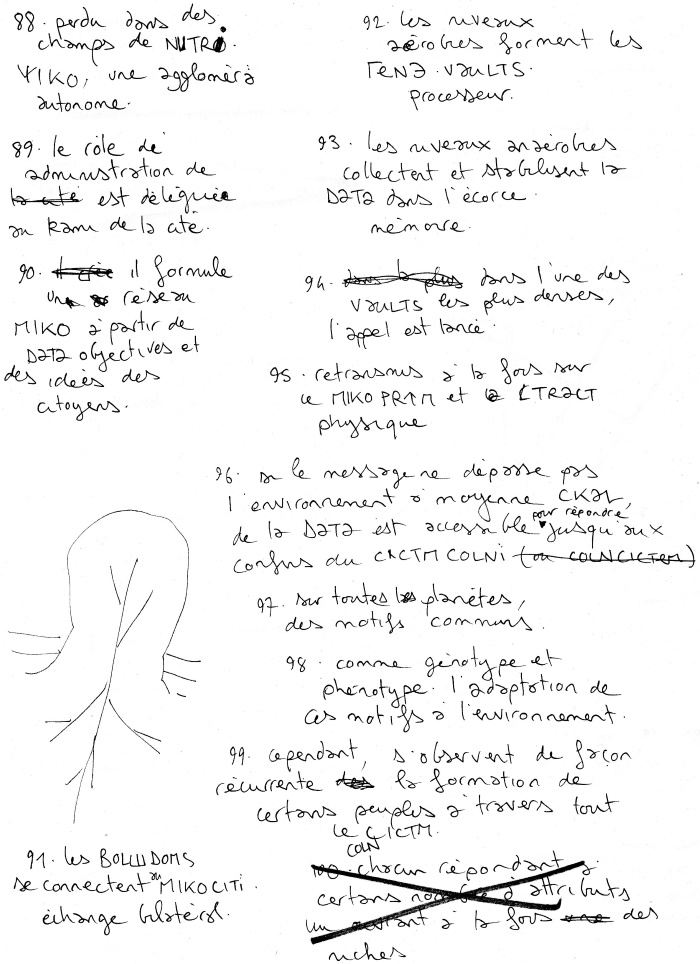 88. perdu dans des
champs de NUTRI.
YIKO, une agglomérà
autonome.
89. le rôle de
administration de
la cité est déléguée
au Kami de la cité.
90. il formule
un réseau
MIKO à partir de
DATA objectives et
des idées des
citoyens.
91. les BOLUDOMS
se connectent au MIKOCITI.
échange bilatéral.
92. les niveaux
aérobies forment les
VAULTS.
processeur.
93. les niveaux anaérobies
collectent et stabilisent la
DATA dans l'écorce.
mémoire.
94. dans la plus dans l'une des
VAULTS les plus denses,
l'appel est lancé.
95. retransmis à la fois sur
le MIKO PRTM et le TRACT
physique
96. si le message ne dépasse pas
l'environnement à moyenne CKAL,
de la DATA est accessible pour répondre jusqu'aux
confins du CACTM COLNI (ou COLNCICTEM)
97. sur toutes les planètes,
des motifs communs.
98. comme génotype et
phénotype. l'adaptation de
ces motifs à l'environnement.
99. cependant, s'observent de façon
récurrente des la formation de
certains peuples à travers tout
le CICTM.
COLN
100. chacun répondant à
certains nombre d'attributs
un à la fois une des
niches